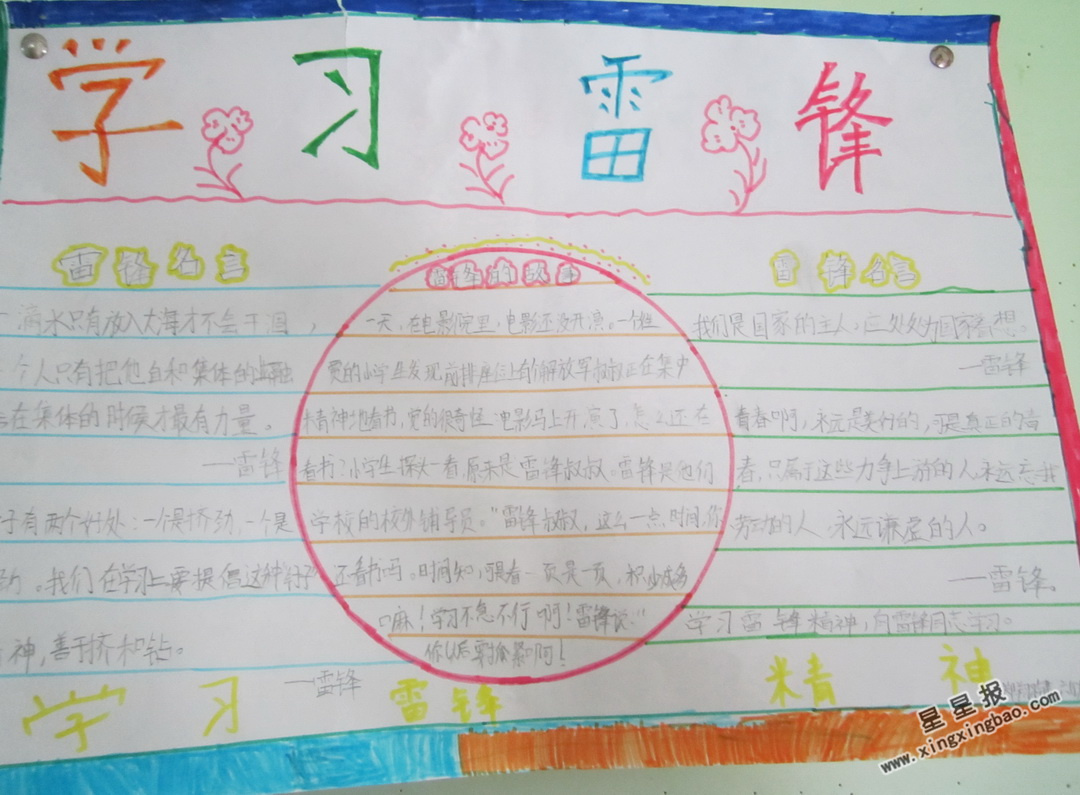 学习雷锋
雷锋名言
一滴水只有放入大海才不会干涸，
个人只有把他自和集体的融
在集体的时候才最有力量。
——雷锋
子有两个好处：一个是挤劲，一个是
劲。我们在学习上要提倡这种钉子
神，善于挤和钻。
——雷锋
雷锋的故事
一天，在电影院里，电影还没开演。一个
的小学生发现前排座位上的解放军叔叔正在集中
精神地看书，觉的很奇怪：电影马上开演了，怎么还在
看书？小学生探头一看原来是雷锋叔叔。雷锋是他们
学校的校外辅导员。"雷锋叔叔，这么一点时间，你
还看书吗。时间短，可看一页是一页，积少成多
嘛！学习不急不行啊！雷锋说："
你以后要抓紧啊！
雷锋名言
我们是国家的主人，应处处为国家着想。
——雷锋
青春啊，永远是美好的，可是真正的青
春，只属于这些力争上游的人，永远忘我
劳动的人，永远谦虚的人。
——雷锋
学习雷锋精神，向雷锋同志学习。
学习雷锋精神
星星报
www.xingxingbao.com